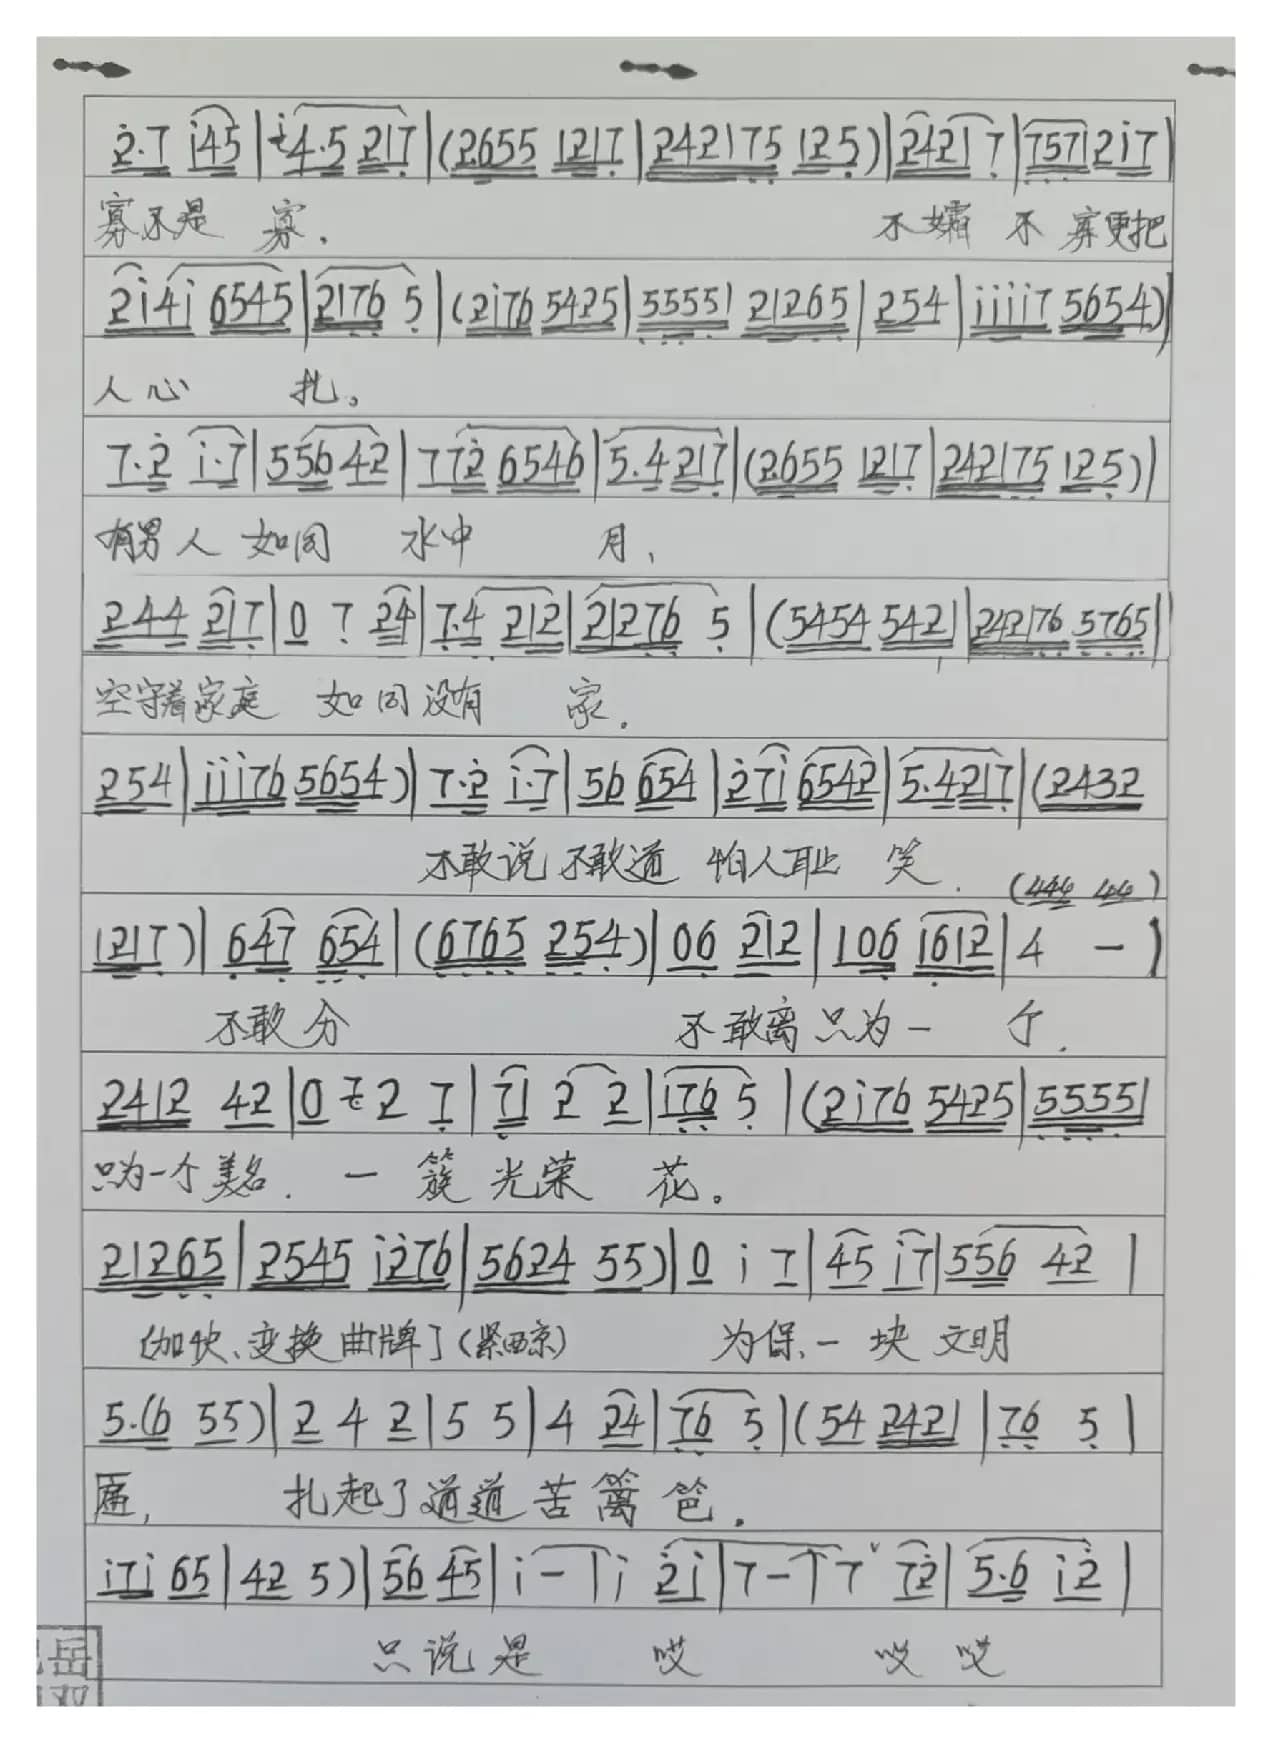 2̇·7 i45|i4·5 217|(2655 1217|242175 125)|2421 7|7571 2i7|
寡不是 寡. 不孀 不 寡更把
2i4i 6545|2176 5|(2i76 5425|55551 21265|254|iiii7 5654)|
人心 扎。
7·2̇ i·7|556 42|772̇ 6546|5·4 217|(2655 1217|242175 125)|
有男人 如同 水中 月,
244 217|0 7 24|7·4 212|21276 5|(5454 5421|242176 5765|
空守着家庭 如同没有 家.
254|iii76 5654)|7·2̇ i·7|56 654|2̇7i 6542|5·4217|(2432
不敢说 不敢道 怕人耻 笑. (444 44)
1217)|647 654|(6765 254)|06 212|106 1612|4 —)
不敢分 不敢离只为一 个.
2412 42|0 7 2 7|71 2 2|i76 5|(2i76 5425|55551
只为一个美名. 一 簇 光荣 花。
21265|2545 i2̇76|5624 55)|0 i 7|45 i7|556 42|
(加快、变换曲牌)(紧西京) 为保、一块 文明
5·(6 55)|2 4 2|5 5|4 24|76 5|(54 2421|76 5|
匾, 扎起了道道苦篱笆.
i7i 65|42 5)|56 45|i—|i 2̇i|7—|7 ᵛ 72̇|5·6 i2̇|
只说是 哎 哎 哎
岳